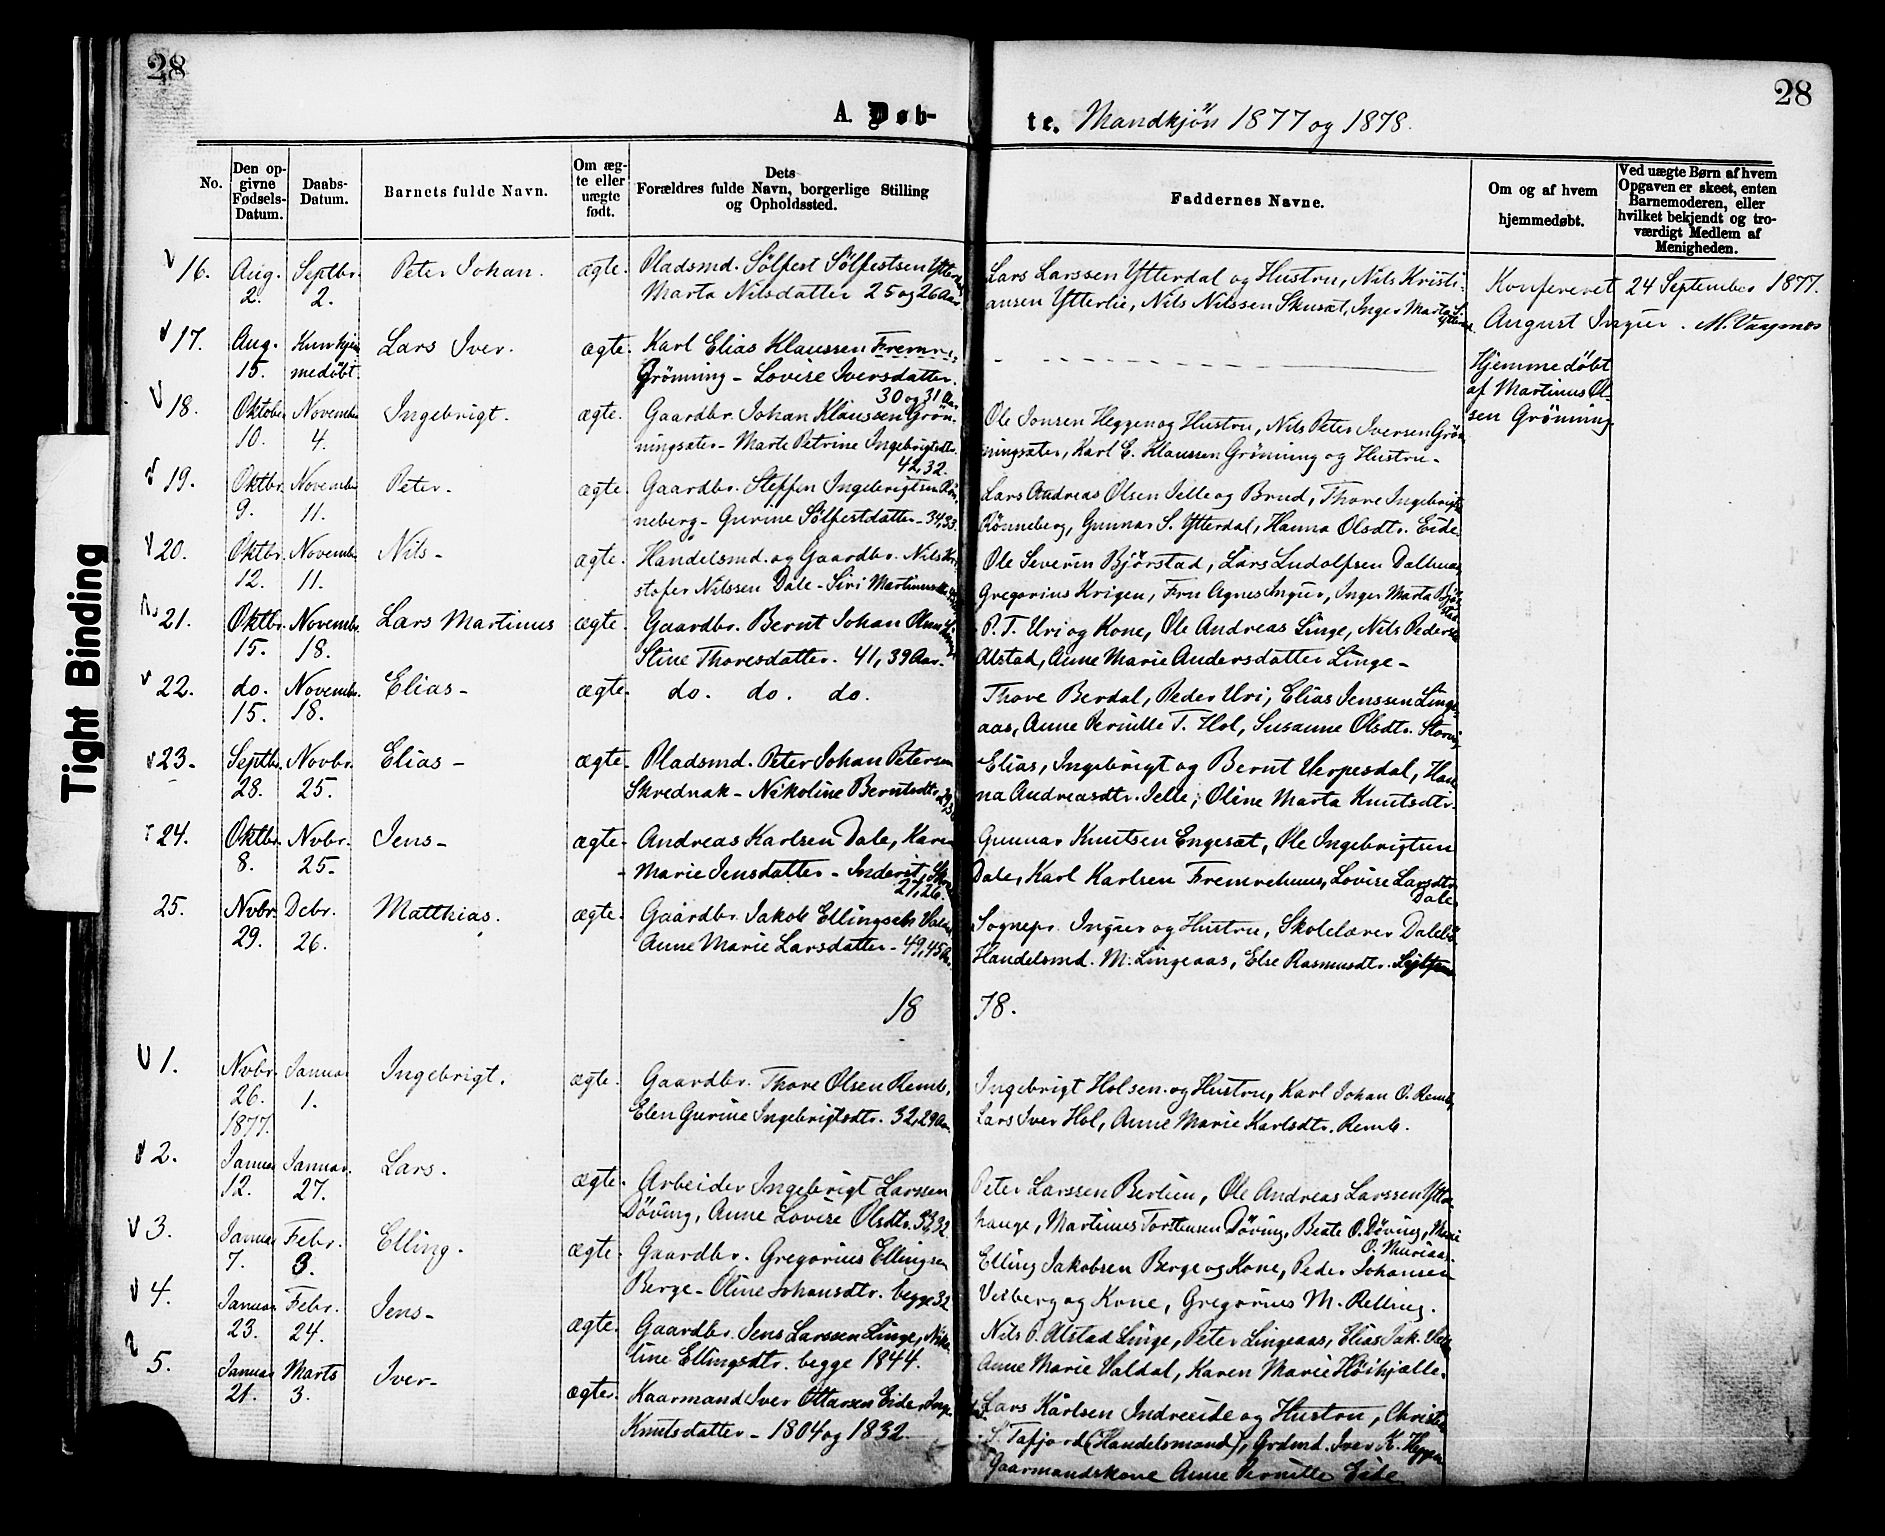 28
28
A. Døb-
te. Mandkjön 1877 og 1878.
No.
Den op-
givne
Fødsels-
Datum.
Daabs-
Datum.
Barnets fulde Navn.
Om æg-
te eller
uægte
født.
Dets
Forældres fulde Navn, borgerlige Stilling
og Opholdssted.
Faddernes Navne.
Om og af hvem
hjemmedøbt.
Ved uægte Børn af hvem
Opgaven er skeet, enten
Barnemoderen, eller
hvilket bekjendt og tro-
værdigt Medlem af
Menigheden.
16. Aug. 2. Septbr. 2. Peter Johan. ægte. Pladsmd. Sölfest Sölfestsen
Marta Nilsdatter 25 og 26 Aar
Lars Larssen Ytterdal og Hustru, Nils Kristi-
ansen Ytterlie, Nils Nilssen Skusæt, Inger Marta
Konfereret 24 September 1877.
August Ingier.
17. Aug. 15. Kun hjem
medøbt. Lars Iver. ægte. Karl Elias Klaussen Fremre-
Grönning - Lovise Iversdatter.
30 og 31 Aar
Hjemmedöbt
af Martinus Ol-
sen Grönning
18. Oktober 10. November 4. Ingebrigt. ægte. Gaardbr. Johan Klaussen Grön-
ningsæter - Marte Petrine Ingebrigtsdtr.
42, 32.
Ole Jonsen Heggen og Hustru, Nils Peter Iversen Grön
ningsæter, Karl E. Klaussen Grönning og Hustru -
19. Oktbr. 9. November 11. Peter - ægte. Gaardbr. Steffen Ingebrigtsen Rön-
neberg - Gurine Sölfestdatter - 34, 33.
Lars Andreas Olsen Jelle og Brud, Thore Ingebrigts
Rönneberg, Gunnar S. Ytterdal, Hanna Olsdtr. Eide
20. Oktbr. 12. Novembr 11. Nils - ægte. Handelsmd. og Gaardbr. Nils Kri
stofer Nilssen Dale - Siri
Ole Severin Björstad, Lars Ludolfsen Dalhus,
Gregorius Krigen, Fru Agnes Ingier, Inger Marta
21. Oktbr. 15. Novembr. 18. Lars Martinus ægte. Gaardbr. Bernt Johan Olsen
Stine Thoresdatter. 41, 39 Aar.
P. T. Uri og Kone, Ole Andreas Linge, Nils Peders
Alstad, Anne Marie Andersdatter Linge -
22. do. 15. Novembr. 18. Elias - ægte. do. do. do.
Thore Berdal, Peder Uri, Elias Jenssen Linge-
aas, Anne Pernille T. Hol, Susanne Olsdtr.
23. Septbr. 28. Novbr. 25. Elias - ægte. Pladsmd. Peter Johan Petersen
Skrednak - Nikoline Berntsdtr.
Elias, Ingebrigt og Bernt Verpesdal, Han
na Andreasdtr. Jelle, Oline Marta Knutsdtr.
24. Oktbr. 8. Nvbr. 25. Jens - ægte. Andreas Karlsen Dale, Karen
Marie Jensdatter - Inderit,
27, 26.
Gunnar Knutsen Engesæt, Ole Ingebrigtsen
Dale, Karl Karlsen Fremrehuus, Lovise Larsdtr
Dale
25. Nvbr. 29. Debr. 26. Matthias. ægte. Gaardbr. Jakob Ellingsen
Anne Marie Larsdatter - 49, 45
Sognepr. Ingier og Hustru, Skolelærer
Handelsmd. M. Lingeaas, Else Rasmusdtr.
18 78.
1. Nvbr. 26. 1877. Januar 1. Ingebrigt. ægte. Gaardbr. Thore Olsen Remb,
Elen Gurine Ingebrigtsdtr. 32, 29 Aar.
Ingebrigt Holsen og Hustru, Karl Johan O. Remb,
Lars Iver Hol, Anne Marie Karlsdtr. Remb.
2. Januar 12. Januar 27. Lars. ægte. Arbeider Ingebrigt Larssen
Döving, Anne Lovise Olsdtr.
Peter Larssen Berlien, Ole Andreas Larssen
Martinus Torstensen Döving, Beate O. Döving, Marie
O. Muriaas
3. Januar 7. Febr. 3. Elling. ægte. Gaardbr. Gregorius Ellingsen
Berge - Oline Johansdtr. begge 32
Elling Jakobsen Berge og Kone, Peder Johansen
Veiberg og Kone, Gregorius M. Relling.
4. Januar 23. Febr. 24. Jens - ægte. Gaardbr. Jens Larssen Linge, Niko
line Ellingsdtr. begge 1844.
Nils P. Alstad Linge, Peter Lingeaas, Elias Jak.
Anne Marie Valdal, Karen Marie Höihjælle.
5. Januar 21. Marts 3. Iver - ægte. Kaarmand Iver Ottarsen Eide,
Knutsdatter - 1804 og 1832.
Lars Karlsen Indreeide og Hustru,
S. Tafjord (Handelsmand), Grdmd. Iver K. Heggen
Gaarmandskone Anne Pernille Eide
Tight Binding